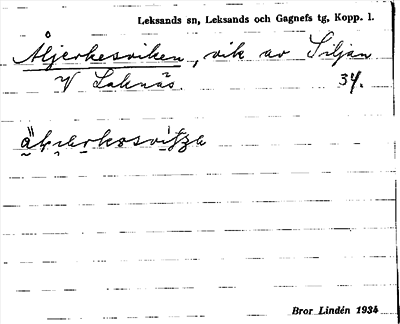 Leksands sn, Leksands och Gagnefs tg, Kopp. l.
Åljerkesviken, vik av Siljan
V Laknäs. 34.
Bror Lindén 1934